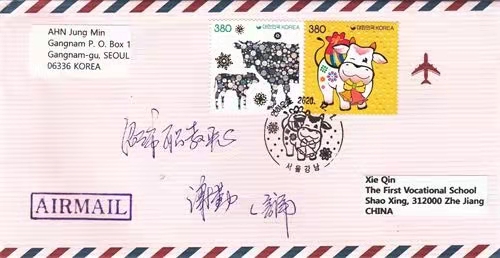 AHN Jung Min
Gangnam P. O. Box 1
Gangnam-gu, SEOUL
06336 KOREA
380 대한민국 KOREA
380 대한민국 KOREA
2020. 12. 1
서울강남
AIRMAIL
Xie Qin
The First Vocational School
Shao Xing, 312000 Zhe Jiang
CHINA